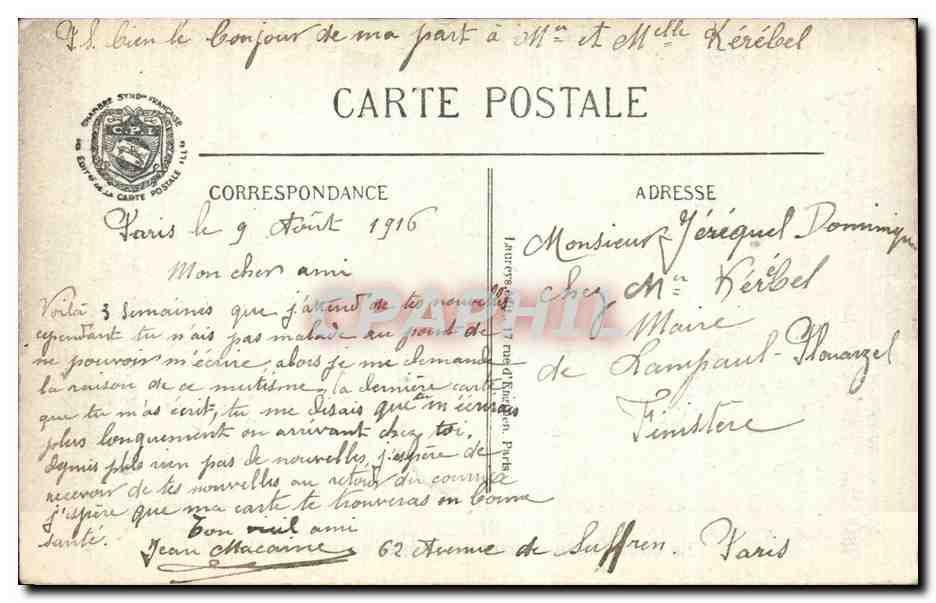 P.S. bien le bonjour de ma part à Mr et Melle Kérébel
CARTE POSTALE
CHAMBRE SYNDle FRANÇAISE
C.P.I.
EDITrs DE LA CARTE POSTALE ILLée
CORRESPONDANCE
Paris le 9 Août 1916
Mon cher ami
Voilà 3 semaines que j'attend de tes nouvelles
cependant tu n'ais pas malade au point de
ne pouvoir m'écrire, alors je me demande
la raison de ce mutisme. la dernière carte
que tu m'as écrit, tu me disais que tu m'écrirais
plus longuement en arrivant chez toi,
depuis plus rien pas de nouvelles, j'espère de
recevoir de tes nouvelles au retour du courrier
j'espère que ma carte te trouveras en bonne
santé.
Ton ami
Jean Macaine 62 Avenue de Suffren. Paris
17 rue d'Enghien, Paris
ADRESSE
Monsieur Jéréquel Dominique
chez Mr Kérébel
Maire
de Lampaul-Plouarzel
Finistère
CPAPHIL